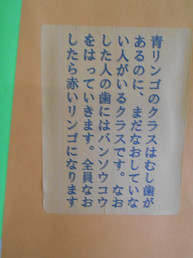 青リンゴのクラスはむし歯が
あるのに、まだなおしていな
い人がいるクラスです。なお
した人の歯にはバンソウコウ
をはっていきます。全員なお
したら赤いリンゴになります